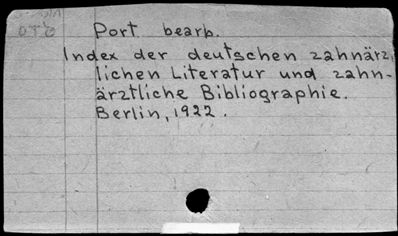 Port bearb.
Index der deutschen zahnärzt
lichen Literatur und zahn-
ärztliche Bibliographie.
Berlin, 1922.